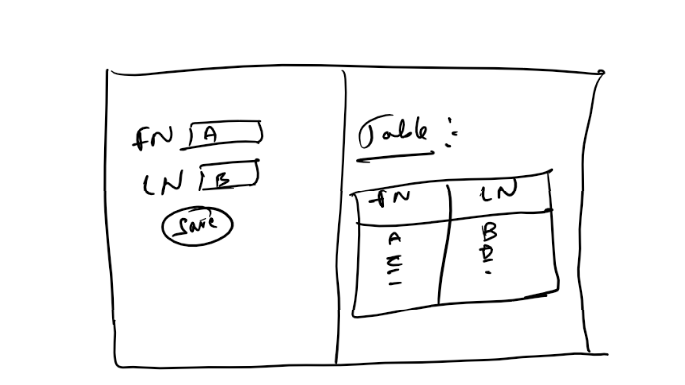 FN A
LN B
Save
Table :-
FN LN
A B
C D